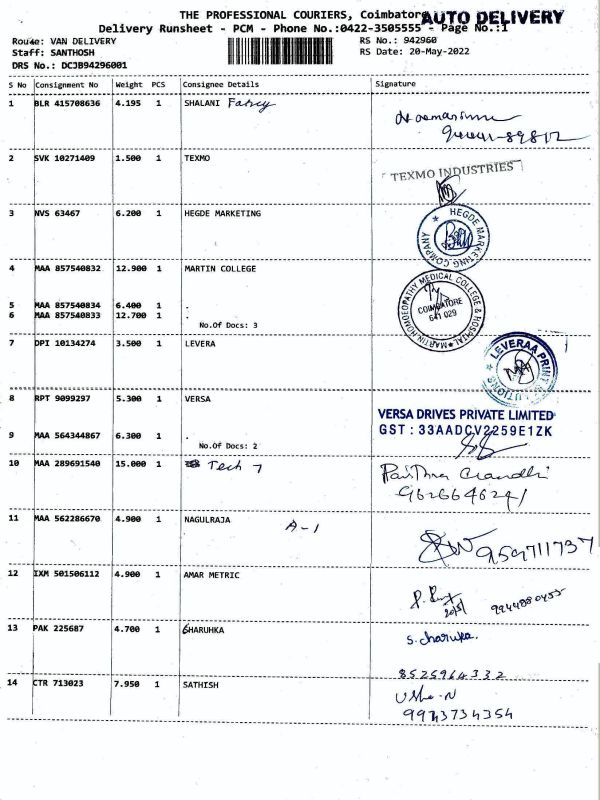 THE PROFESSIONAL COURIERS, Coimbatore AUTO DELIVERY
Delivery Runsheet - PCM - Phone No.:0422-3505555 - Page No.:1
Route: VAN DELIVERY RS No.: 942960
Staff: SANTHOSH RS Date: 20-May-2022
DRS No.: DCJB94296001
S No Consignment No Weight PCS Consignee Details Signature
1 BLR 415708636 4.195 1 SHALANI
2 SVK 10271409 1.500 1 TEXMO
TEXMO INDUSTRIES
3 NVS 63467 6.200 1 HEGDE MARKETING
HEGDE MARKETING COMPANY
4 MAA 857540832 12.900 1 MARTIN COLLEGE
MARTIN HOMOEOPATHY MEDICAL COLLEGE & HOSPITAL
COIMBATORE
641 029
5 MAA 857540834 6.400 1 .
6 MAA 857540833 12.700 1 .
No.Of Docs: 3
7 DPI 10134274 3.500 1 LEVERA
LEVERAA PRINT SOLUTIONS
8 RPT 9099297 5.300 1 VERSA
VERSA DRIVES PRIVATE LIMITED
GST : 33AADCV2259E1ZK
9 MAA 564344867 6.300 1 .
No.Of Docs: 2
10 MAA 289691540 15.000 1 Tech 7
11 MAA 562286670 4.900 1 NAGULRAJA A-1
9597711737
12 IXM 501506112 4.900 1 AMAR METRIC
20/5/
13 PAK 225687 4.700 1 CHARUHKA
S. charuka.
8525964332
14 CTR 713023 7.950 1 SATHISH
Usha-N
9943734354